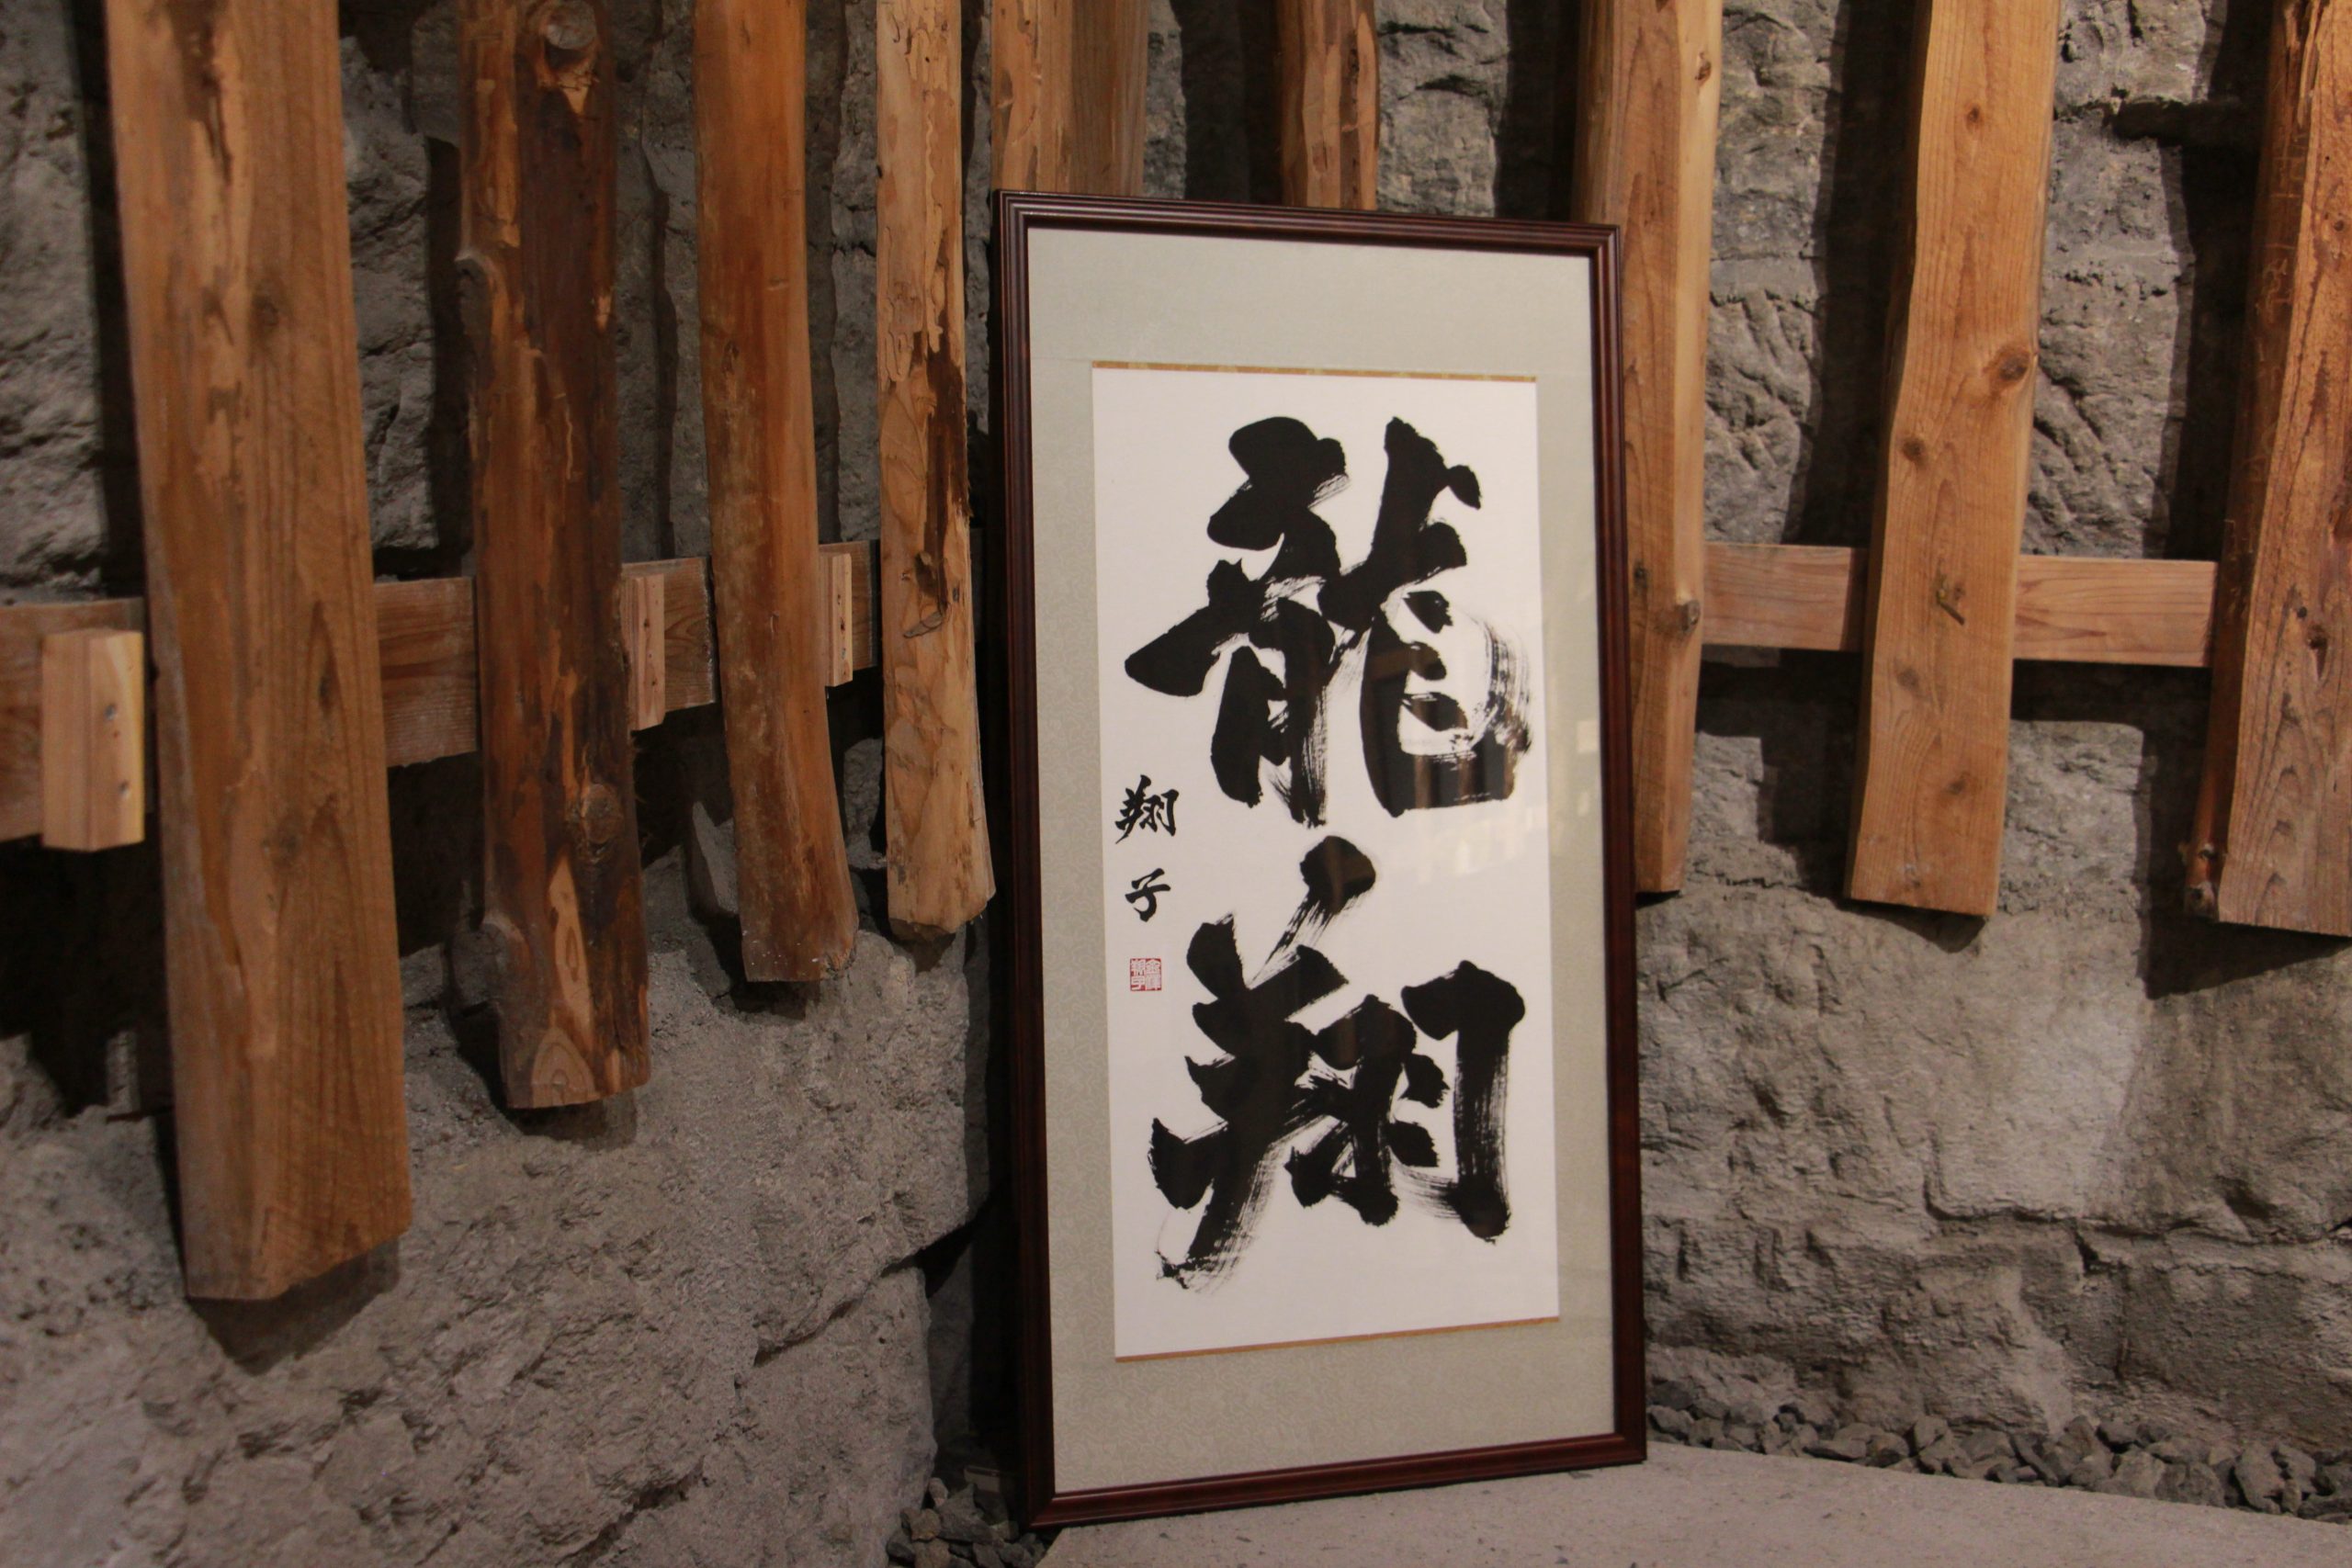 龍翔
翔子